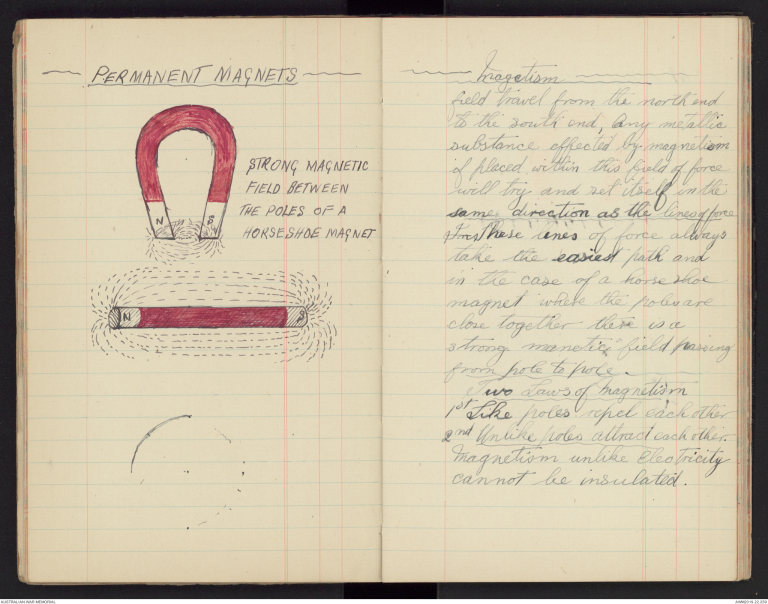 PERMANENT MAGNETS
N
S
STRONG MAGNETIC
FIELD BETWEEN
THE POLES OF A
HORSESHOE MAGNET
N
S
Magetism
field travel from the north end
to the south end, Any metallic
substance effected by magnetism
if placed within this field of force
will try and set itself in the
same direction as the lines of force
These lines of force always
take the easiest path and
in the case of a horse shoe
magnet where the poles are
close together there is a
strong field passing
from pole to pole.
Two Laws of Magnetism
1st Like poles repel each other
2nd Unlike poles attract each other.
Magnetism unlike Electricity
cannot be insulated.
AUSTRALIAN WAR MEMORIAL